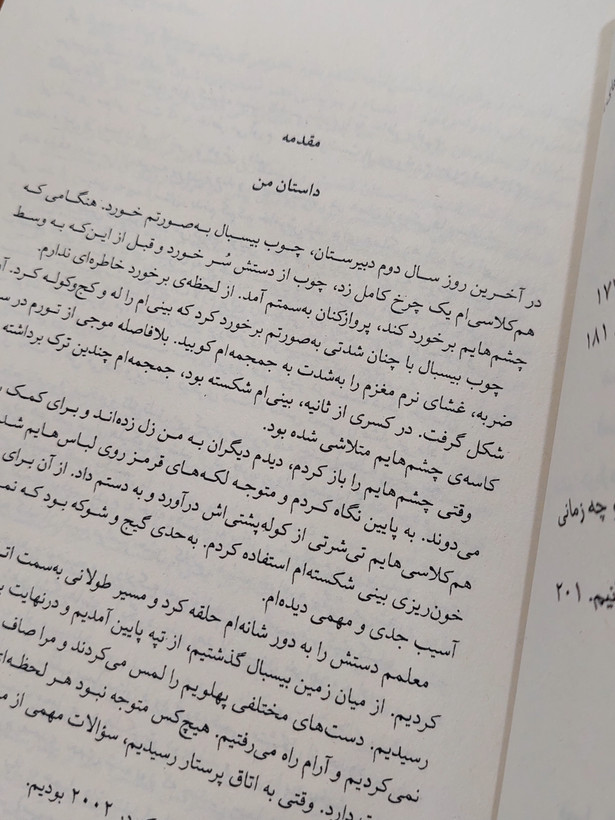 مقدمه
داستان من
در آخرین روز سال دوم دبیرستان، چوب بیسبال به‌صورتم خورد. هنگامی که
هم‌کلاسی‌ام یک چرخ کامل زد، چوب از دستش سُر خورد و قبل از این‌که به وسط
چشم‌هایم برخورد کند، پروازکنان به‌سمتم آمد. از لحظه‌ی برخورد خاطره‌ای ندارم.
چوب بیسبال با چنان شدتی به‌صورتم برخورد کرد که بینی‌ام را له و کج‌وکوله کرد.
ضربه، غشای نرم مغزم را به‌شدت به جمجمه‌ام کوبید. بلافاصله موجی از تورم در
شکل گرفت. در کسری از ثانیه، بینی‌ام شکسته بود، جمجمه‌ام چندین ترک برداشته
کاسه‌ی چشم‌هایم متلاشی شده بود.
وقتی چشم‌هایم را باز کردم، دیدم دیگران به من زل زده‌اند و برای کمک
می‌دوند. به پایین نگاه کردم و متوجه لکه‌های قرمز روی لباس‌هایم
هم‌کلاسی‌هایم تی‌شرتی از کوله‌پشتی‌اش درآورد و به دستم داد. از آن برای
خون‌ریزی بینی شکسته‌ام استفاده کردم. به‌حدی گیج و شوکه بودم که
آسیب جدی و مهمی دیده‌ام.
معلمم دستش را به دور شانه‌ام حلقه کرد و مسیر طولانی به‌سمت
کردیم. از میان زمین بیسبال گذشتیم، از تپه پایین آمدیم و درنهایت
رسیدیم. دست‌های مختلفی پهلویم را لمس می‌کردند و مرا صاف
نمی‌کردیم و آرام راه می‌رفتیم. هیچ‌کس متوجه نبود هر
ندارد. وقتی به اتاق پرستار رسیدیم، سؤالات مهمی از
۲۰۰۲ بودیم.
۱۸۱
چه زمانی
۲۰۱